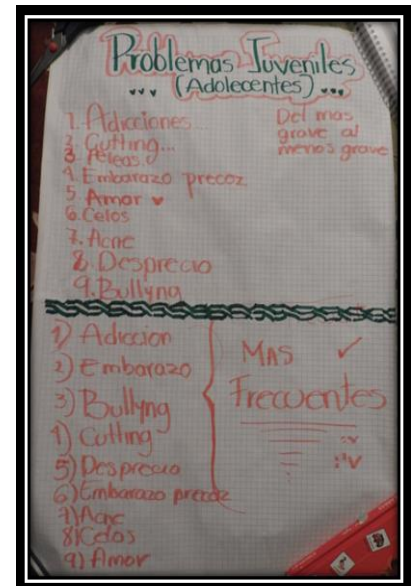 Problemas Juveniles
(Adolecentes)
1. Adicciones
2. Cutting...
3. Peleas.
4. Embarazo precoz
5 Amor
6. Celos
7. Acne
8. Desprecio
9. Bullyng
Del mas
grave al
menos grave
1) Adiccion
2) Embarazo
3) Bullyng
4) Cutting
5) Desprecio
6) Embarazo precoz
7) Acne
8) Celos
9) Amor
MAS
Frecuentes